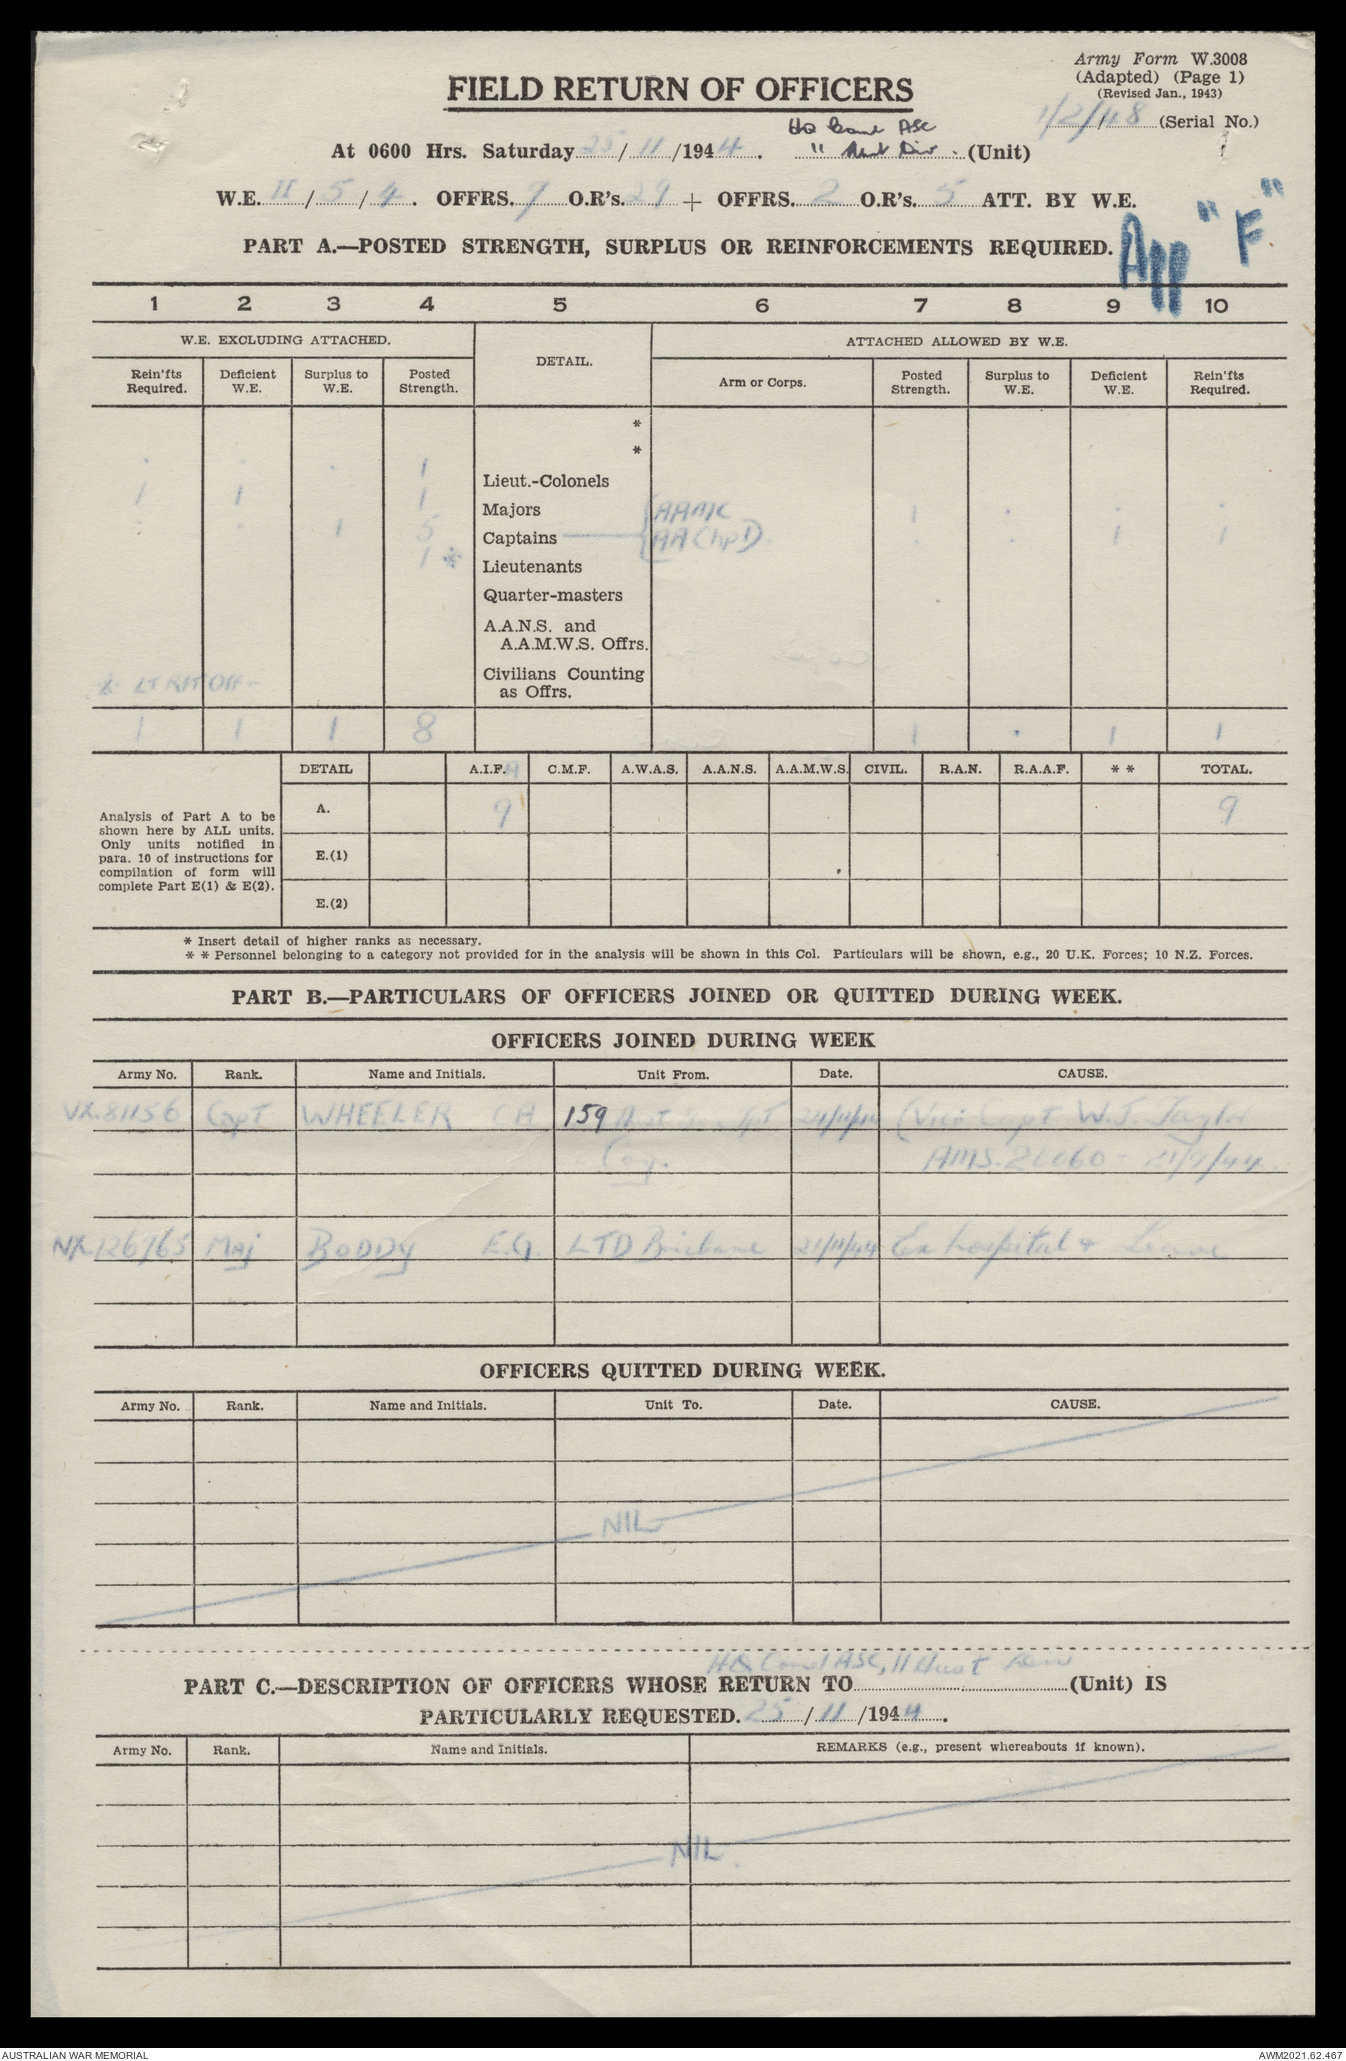 Army Form W.3008
(Adapted) (Page 1)
(Revised Jan., 1943)
1/2/48 (Serial No.)
FIELD RETURN OF OFFICERS
HQ Comd ASC
At 0600 Hrs. Saturday 25/11/1944. 11 Aust Div. (Unit)
W.E. II/5/4. OFFRS. 7 O.R's. 29 + OFFRS. 2 O.R's. 5 ATT. BY W.E.
App "F"
PART A.—POSTED STRENGTH, SURPLUS OR REINFORCEMENTS REQUIRED.
1 2 3 4 5 6 7 8 9 10
W.E. EXCLUDING ATTACHED. DETAIL. ATTACHED ALLOWED BY W.E.
Rein'fts Required. Deficient W.E. Surplus to W.E. Posted Strength. Arm or Corps. Posted Strength. Surplus to W.E. Deficient W.E. Rein'fts Required.
*
*
. . . 1 Lieut.-Colonels
1 1 1 Majors AAMC 1 . . .
. . 1 5 Captains AAChpD. . . 1 1
1 * Lieutenants
Quarter-masters
A.A.N.S. and
A.A.M.W.S. Offrs.
Civilians Counting
as Offrs.
* LT RFT Off-
1 1 1 8 1 . 1 1
DETAIL A.I.F. C.M.F. A.W.A.S. A.A.N.S. A.A.M.W.S. CIVIL. R.A.N. R.A.A.F. * * TOTAL.
A. 9 9
E.(1)
E.(2)
Analysis of Part A to be
shown here by ALL units.
Only units notified in
para. 10 of instructions for
compilation of form will
complete Part E(1) & E(2).
* Insert detail of higher ranks as necessary.
* * Personnel belonging to a category not provided for in the analysis will be shown in this Col. Particulars will be shown, e.g., 20 U.K. Forces; 10 N.Z. Forces.
PART B.—PARTICULARS OF OFFICERS JOINED OR QUITTED DURING WEEK.
OFFICERS JOINED DURING WEEK
Army No. Rank. Name and Initials. Unit From. Date. CAUSE.
VX.81156 Capt WHEELER CA 159 Aust Tpt 24/11/44 (Vice Capt W.J. Taylor
Coy. AMS. 26060 - 21/9/44
NX.126765 Maj BODDY E.G. LTD Brisbane 21/11/44 Ex hospital + Leave
OFFICERS QUITTED DURING WEEK.
Army No. Rank. Name and Initials. Unit To. Date. CAUSE.
NIL
HQ Comd ASC, 11 Aust Div
PART C.—DESCRIPTION OF OFFICERS WHOSE RETURN TO (Unit) IS
PARTICULARLY REQUESTED. 25/11/1944.
Army No. Rank. Name and Initials. REMARKS (e.g., present whereabouts if known).
NIL.
AUSTRALIAN WAR MEMORIAL
AWM2021.62.467